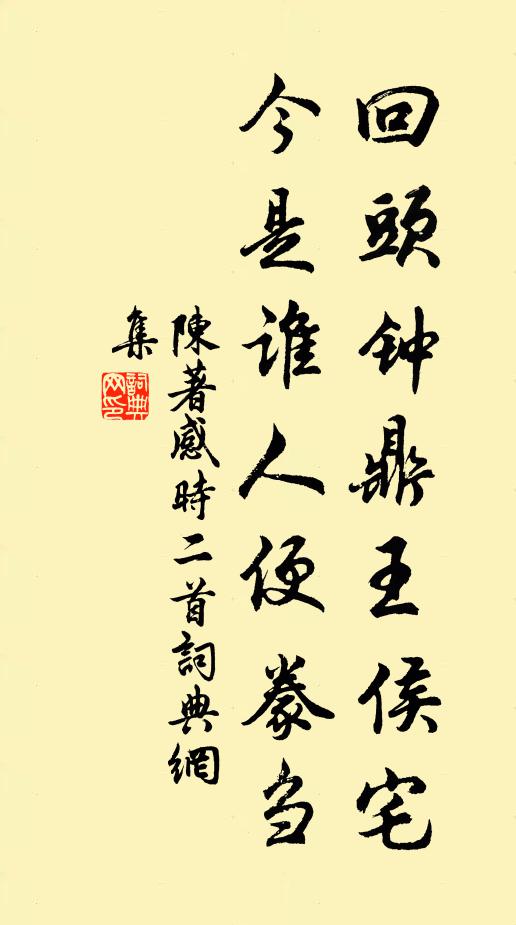 回頭钟鼎王侯宅
今是谁人便豢刍
陳著感時二首詞典網
集
詞典
网印